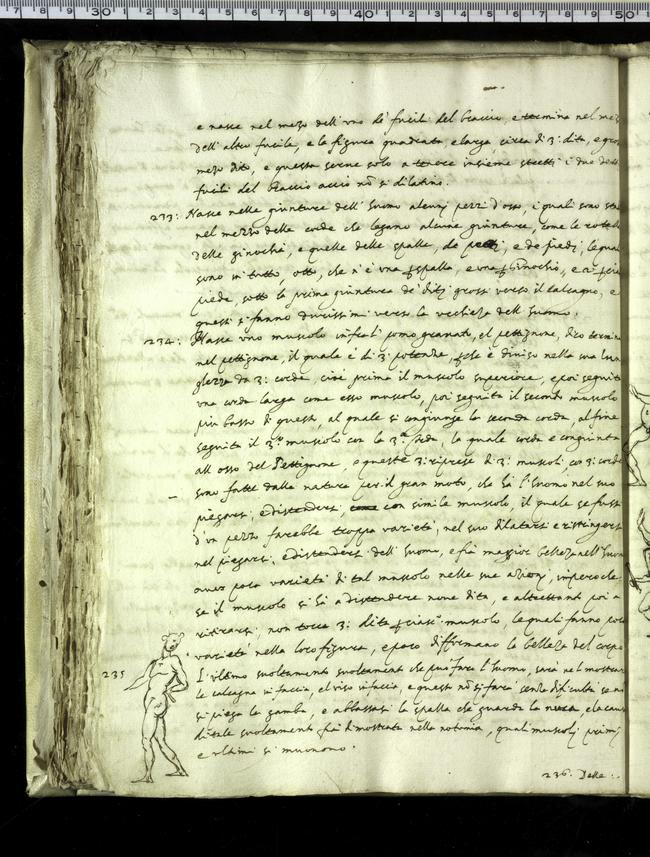 e nasce nel mezo dell'uno de fucili del braccio, e termina nel mezo
dell'altro fucile, e la figura quadrata, e larga circa di 3: dita, e gro
mezo dito, e questa serue solo a tenere insieme stretti i due detti
fucili del braccio accio nõ si dilatino.
233: Nasce nelle giunture dell'huomo alcuni pezzi d'osso, i quali sono sta
nel mezzo delle corde che legano alcune giunture, come le rotelle
delle ginochia, e quelle delle spalle, de petti, e de piedi, le quali
sono in tutto, otto, che n'è una p spalla, e una p Ginochio, e
piede, sotto la prima giuntura de diti grossi verso il calcagno, e
questi si fanno durissimi verso la vechieza dell'huomo.
234: Nasce uno muscolo infra il pomo granato, el pettignone, dico termina
nel pettignone, il quale è di 3: potenze, p che è diuiso nella sua lun
gheza da 3: corde, cioè prima il muscolo superiore, e poi seguita
una corda larga come esso muscolo, poi seguita il secondo muscolo
piu basso di questo, al quale si congiunge la seconda corda, al fine
seguita il 3.º muscolo con la 3.ª corda, la quale corda e congiunta
all'osso del Pettignone, e queste 3: riprese di 3: muscoli, con 3: corde
sono fatte dalla natura per il gran moto, che hà l'huomo nel suo
piegarsi, e distendersi, con simile muscolo, il quale se fusse
d'un pezzo farebbe troppa varietà, nel suo dilatarsi e ristringersi
nel piegarsi, e distendersi dell'huomo, e fà maggior belleza nell'huomo
auer poca varietà di tal muscolo nelle sue azioni, imperoche
se il muscolo si hà a distendere noue dita, e altrettanti poi a
ritirarsi, non tocca 3: dita p ciasº muscolo, le quali fanno poca
varietà nella loro figura, e poco difformano la belleza del corpo
235 L'ultimo suoltamento che può fare l'huomo, sarà nel mostrar
le calcagna in faccia, el viso in faccia, e questo nõ si farà senza dificultà se nõ
si piega la gamba, e abbassasi la spalla che guarda la nucca, e la causa
di tale suoltamento fia dimostrata nella notomia, quali muscoli primi
e ultimi si muouono.
236. Delle: